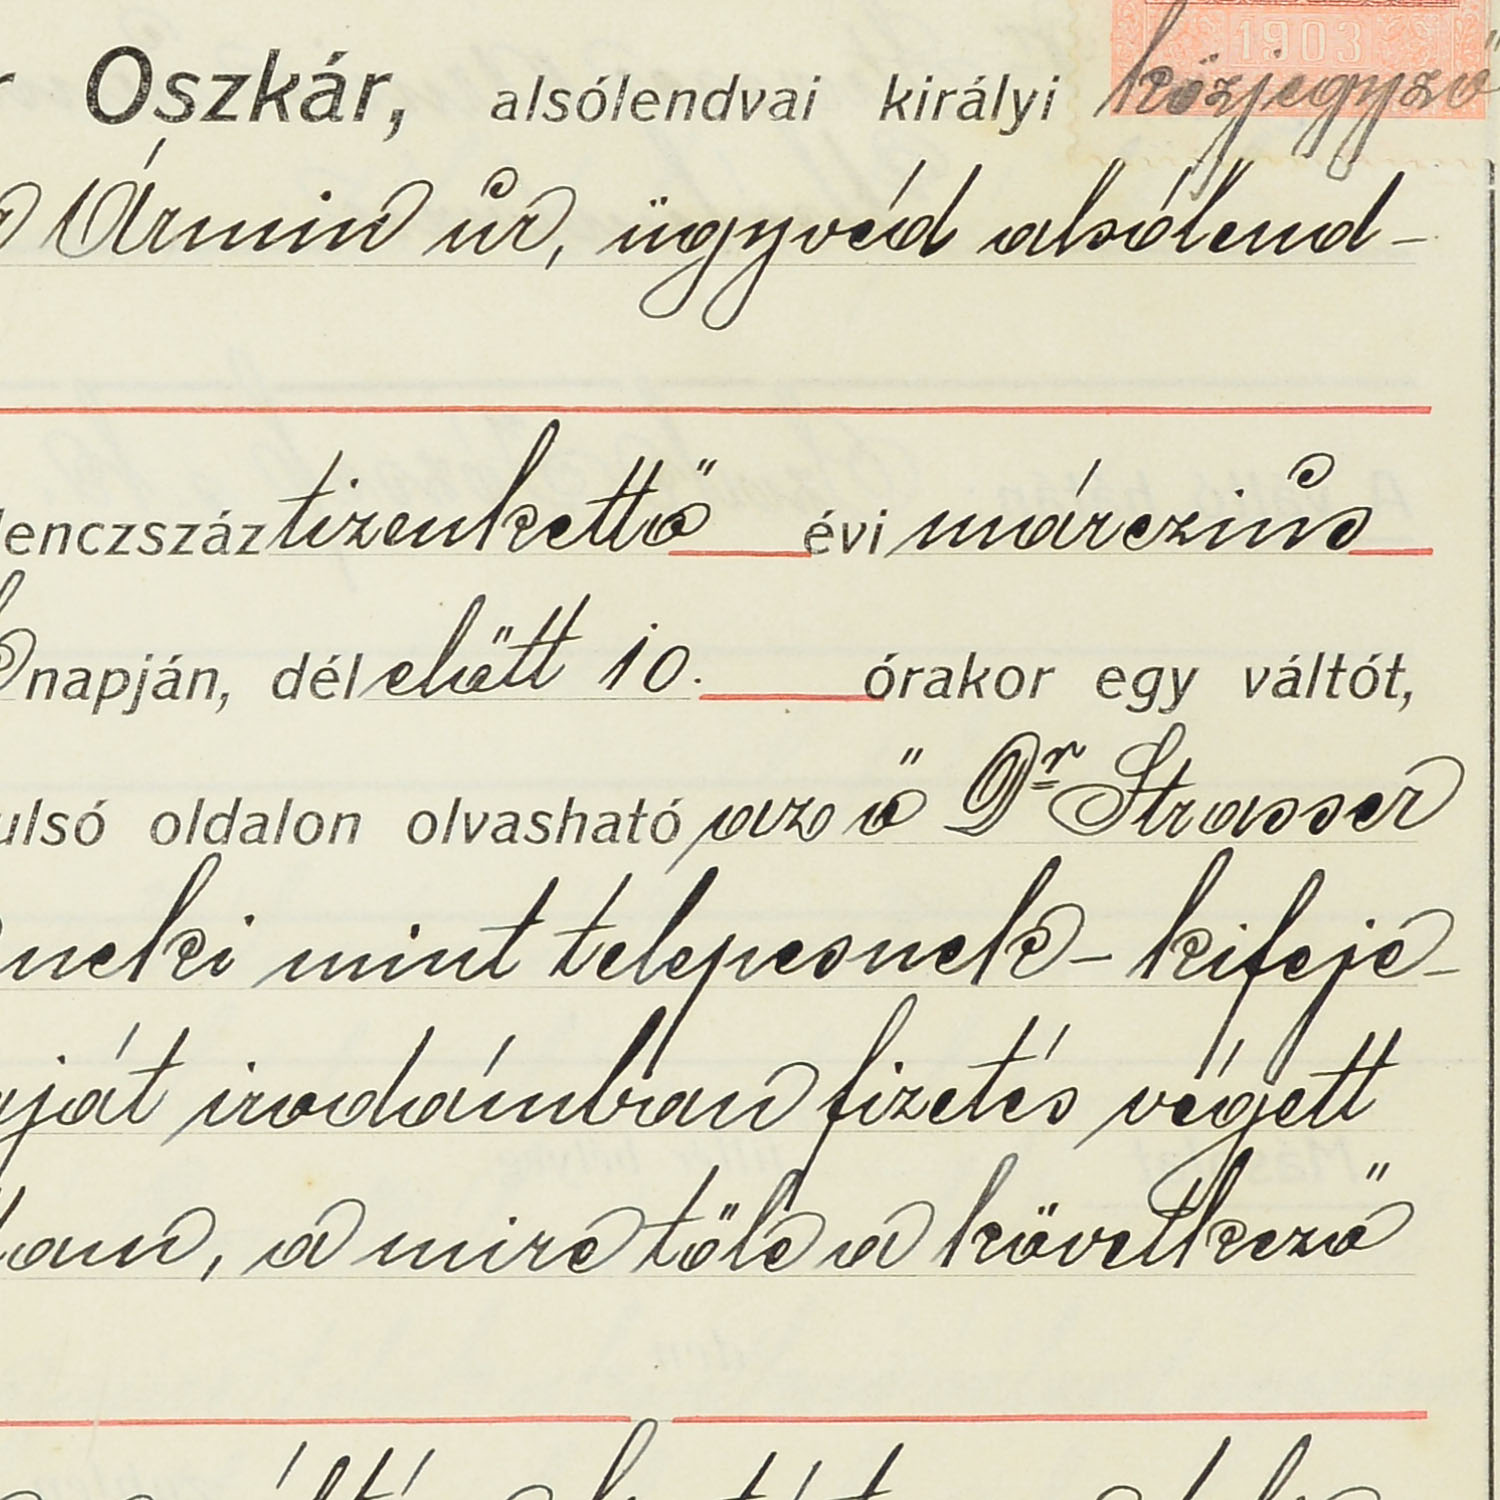 1903
Oszkár, alsólendvai királyi közjegyző
Ármin úr, ügyvéd alsólend-
lenczszáz tizenkettő évi márczius
napján, délelőtt 10. órakor egy váltót,
ulsó oldalon olvasható az ő Dr Strasser
neki mint telepesnek - kifeje-
ját irodámban fizetés végett
tam, a mire tőle a következő